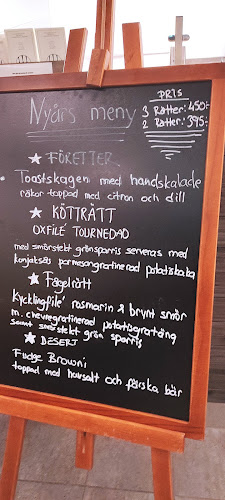 PRIS
3 Rätter: 450:-
2 Rätter: 395:-
Nyårs meny
★ FÖRETTER
Toastskagen med handskalade
räkor toppad med citron och dill
★ KÖTTRÄTT
OXFILÉ TOURNEDAD
med smörstekt grönsparris serveras med
konjaksås parmesangratinerad potatiskaka
★ Fågelrätt
Kycklingfilé rosmarin & brynt smör
m. chevregratinerad potatisgratäng
samt smörstekt grön sparris
★ DESERT
Fudge Browni
toppad med havsalt och färska bär